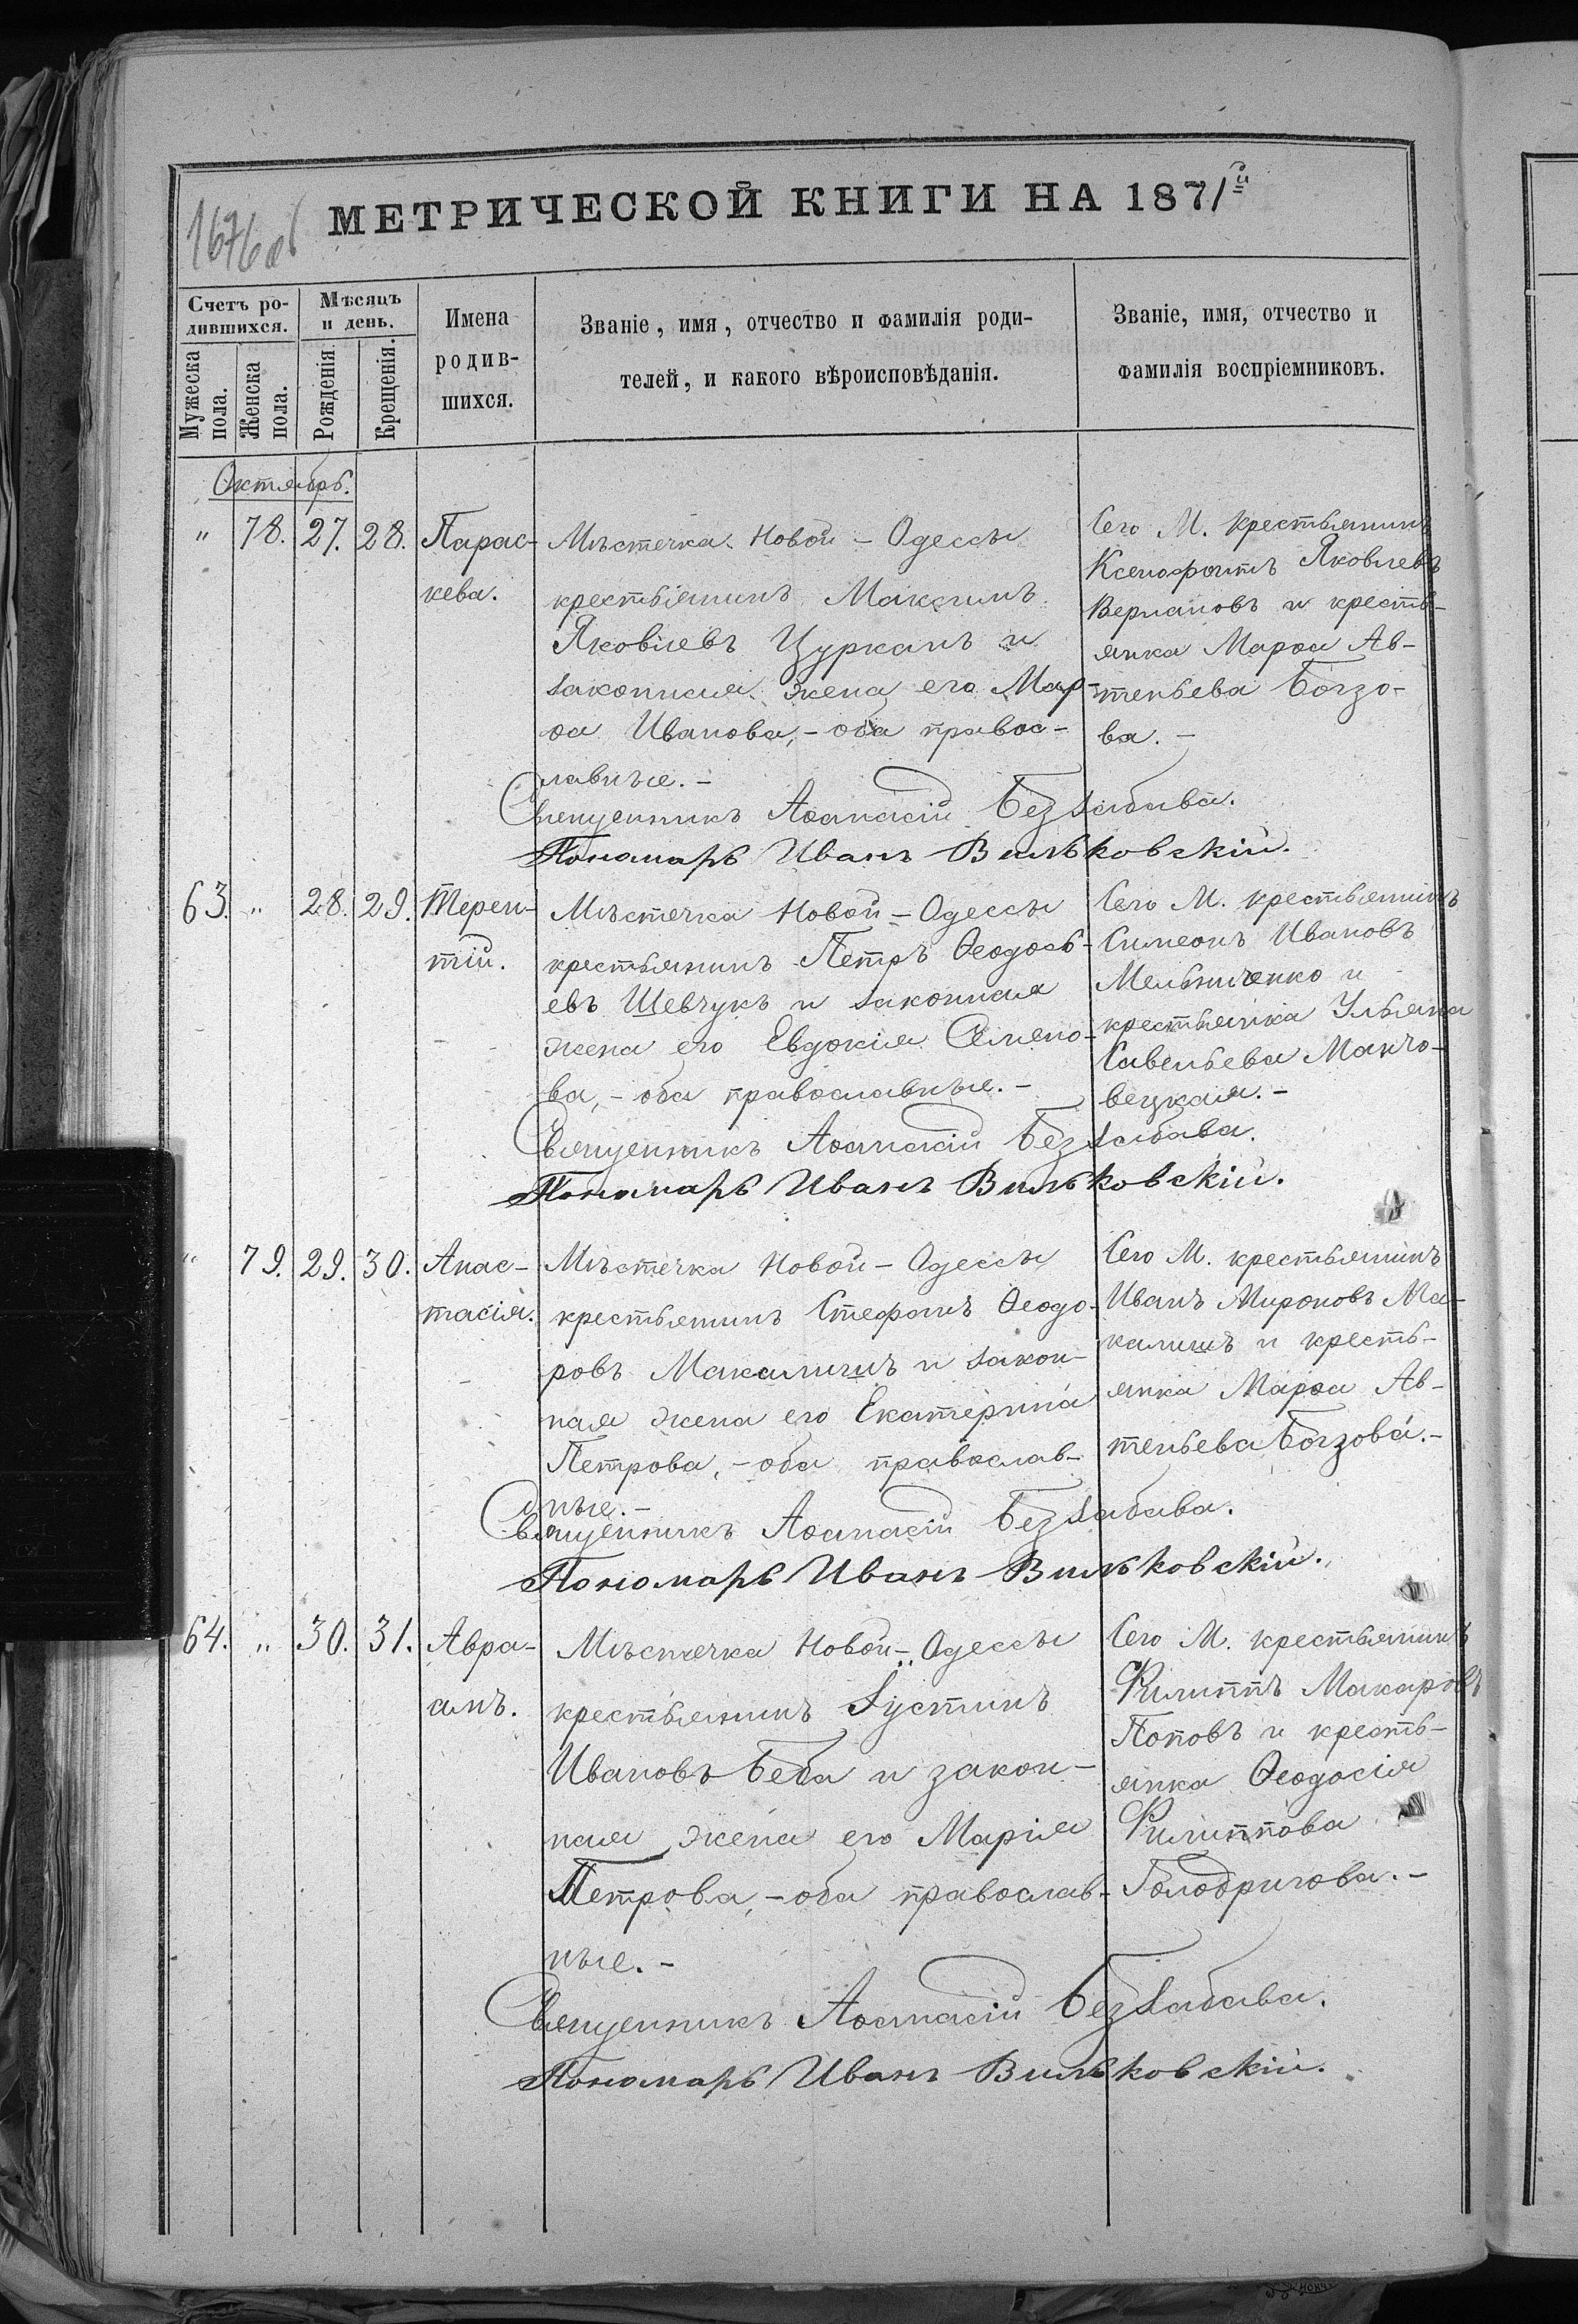 1676 об
МЕТРИЧЕСКОЙ КНИГИ НА 1871й
Счетъ ро-
дившихся.
Мужеска
пола.
Женска
пола.
Мѣсяцъ
и день.
Рожденія.
Крещенія.
Имена
родив-
шихся.
Званіе, имя, отчество и фамилія роди-
телей, и какого вѣроисповѣданія.
Званіе, имя, отчество и
фамилія воспріемниковъ.
Октябрь.
" 78. 27. 28.
Парас-
кева.
Мѣстечка Новой-Одессы
крестьянинъ Максимъ
Яковлевъ Цурканъ и
законная жена его Мар-
ѳа Иванова,- оба правос-
лавные.-
Сего М. крестьянинъ
Ксенофонтъ Яковлевъ
Верлановъ и кресть-
янка Марѳа Ав-
теньева Богзо-
ва.-
Священникъ Аѳанасій Беззабава.
Пономарь Иванъ Вильковскій.
63. " 28. 29.
Терен-
тій.
Мѣстечка Новой-Одессы
крестьянинъ Петръ Ѳеодось-
евъ Шевчукъ и законная
жена его Евдокія Семено-
ва,- оба православные.-
Сего М. крестьянинъ
Симеонъ Ивановъ
Мельниченко и
крестьянка Ульяна
Савельева Макто-
вецкая.-
Священникъ Аѳанасій Беззабава.
Пономарь Иванъ Вильковскій.
" 79. 29. 30.
Анас-
тасія.
Мѣстечка Новой-Одессы
крестьянинъ Стефанъ Ѳеодо-
ровъ Макалишъ и закон-
ная жена его Екатерина
Петрова,- оба православ-
ные.-
Сего М. крестьянинъ
Иванъ Мироновъ Ма-
калишъ и кресть-
янка Марѳа Ав-
теньева Богзова.-
Священникъ Аѳанасій Беззабава.
Пономарь Иванъ Вильковскій.
64. " 30. 31.
Авра-
амъ.
Мѣстечка Новой-Одессы
крестьянинъ Іустинъ
Ивановъ Беба и закон-
ная жена его Марія
Петрова,- оба православ-
ные.-
Сего М. крестьянинъ
Филиппъ Макаровъ
Поповъ и кресть-
янка Ѳеодосія
Филиппова
Голодригова.-
Священникъ Аѳанасій Беззабава.
Пономарь Иванъ Вильковскій.